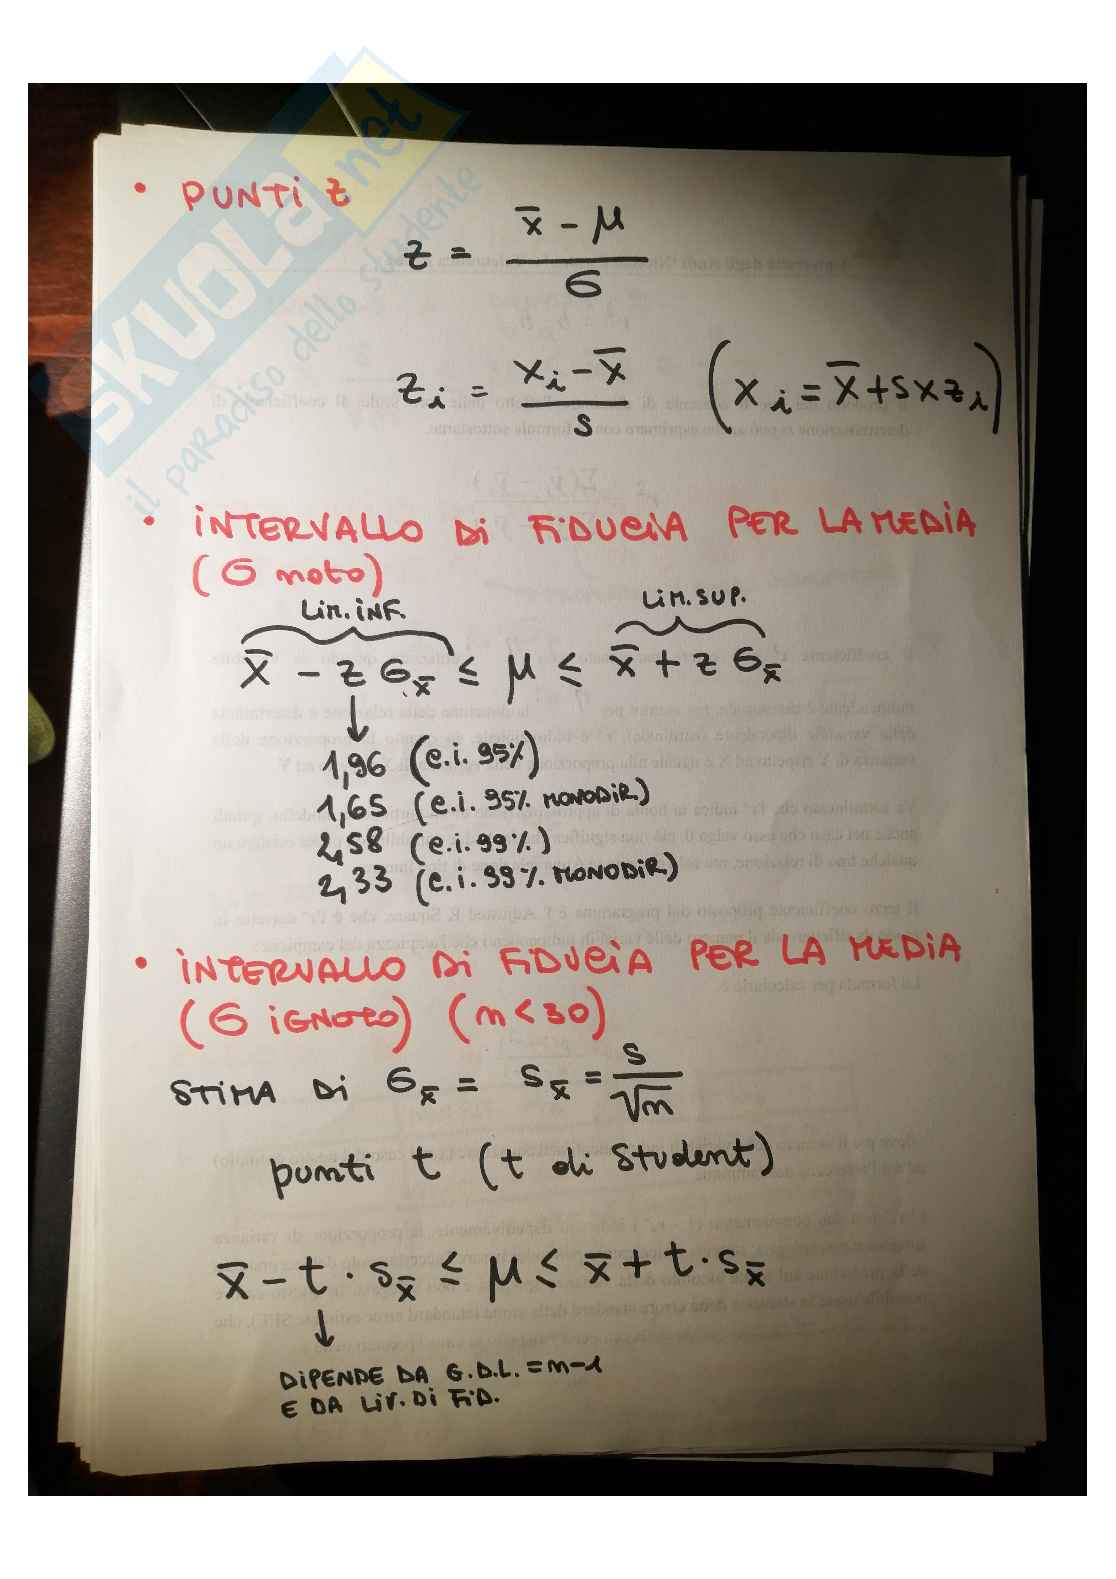 SKUOLA.net
il paradiso dello studente
• PUNTI Z
z = (x̄ - μ) / σ
z_i = (x_i - x̄) / s (x_i = x̄ + s x z_i)
• INTERVALLO DI FIDUCIA PER LA MEDIA
(σ noto)
LIM. INF. LIM. SUP.
x̄ - z σ_x̄ ≤ μ ≤ x̄ + z σ_x̄
↓
1,96 (c.i. 95%)
1,65 (c.i. 95% MONODIR.)
2,58 (c.i. 99%)
2,33 (c.i. 99% MONODIR)
• INTERVALLO DI FIDUCIA PER LA MEDIA
(σ IGNOTO) (n < 30)
STIMA DI σ_x̄ = s_x̄ = s / √n
punti t (t di Student)
x̄ - t · s_x̄ ≤ μ ≤ x̄ + t · s_x̄
↓
DIPENDE DA G.D.L. = n-1
E DA LIV. DI FID.